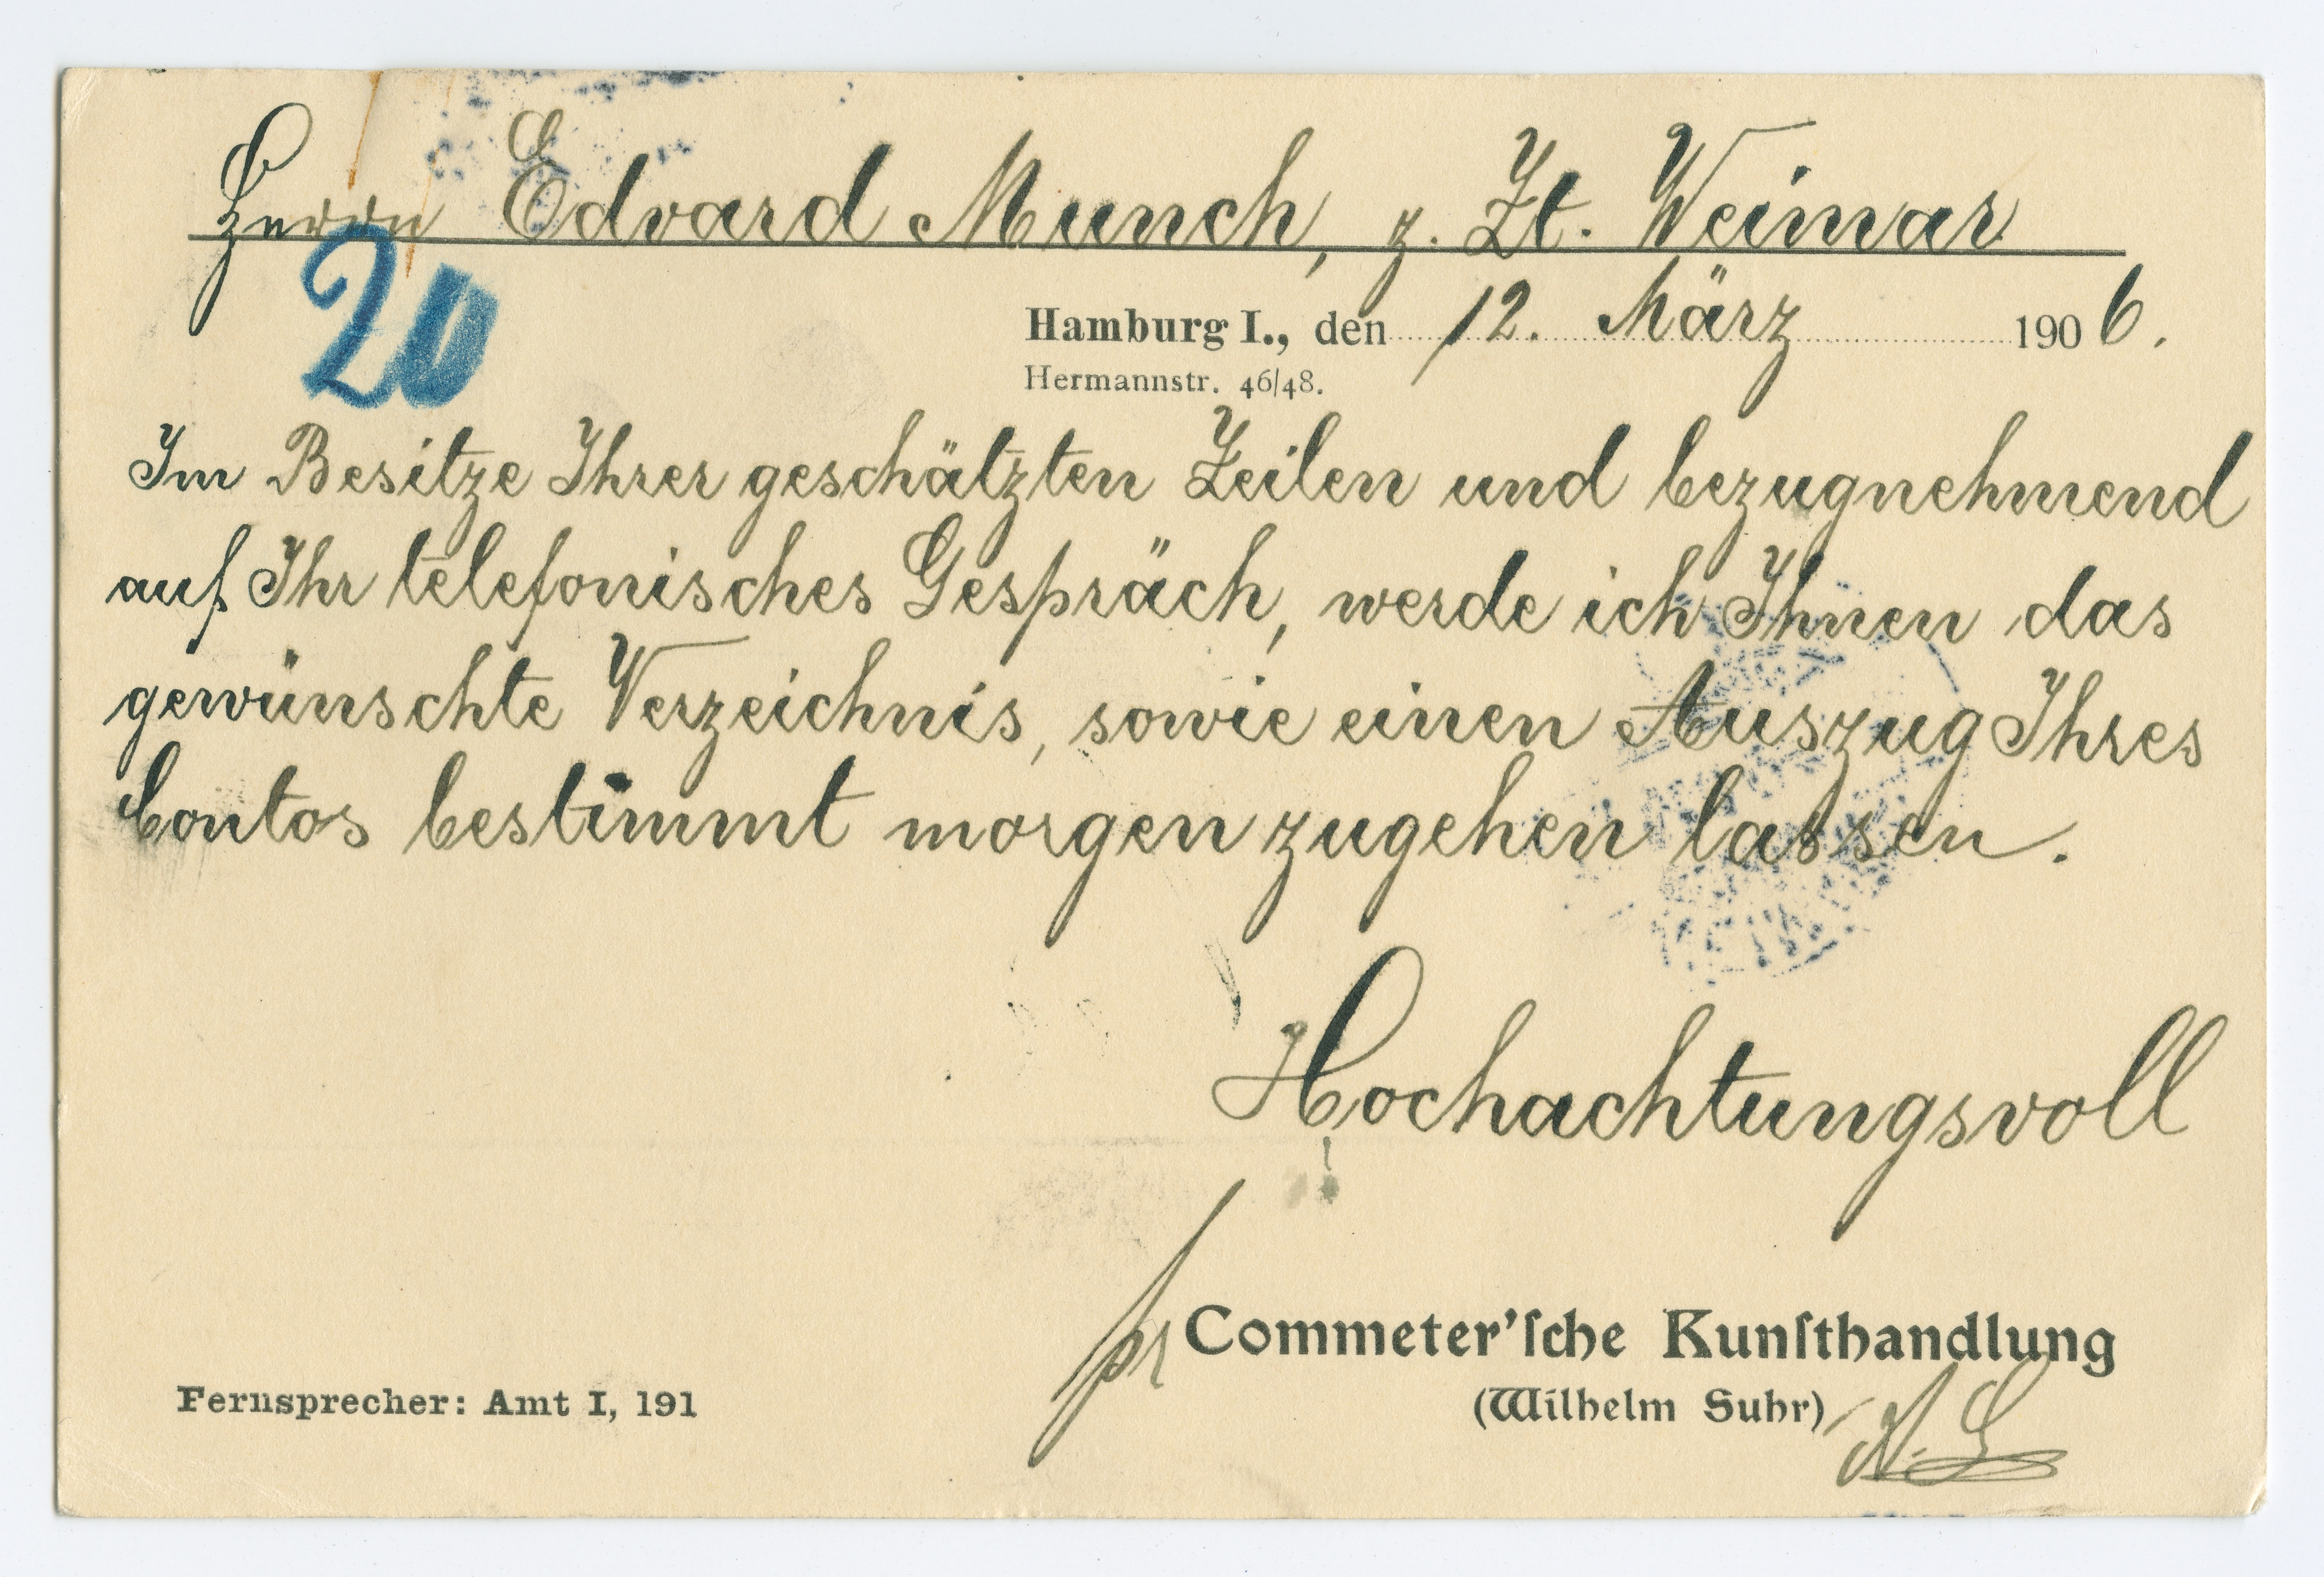 Herrn Edvard Munch, z. Zt. Weimar
20
Hamburg I., den 12. März 1906.
Hermannstr. 46/48.
Im Besitze Ihrer geschätzten Zeilen und bezugnehmend
auf Ihr telefonisches Gespräch, werde ich Ihnen das
gewünschte Verzeichnis, sowie einen Auszug Ihres
Contos bestimmt morgen zugehen lassen.
Hochachtungsvoll
pr Commeter'ſche Kunſthandlung
(Wilhelm Suhr)
Fernsprecher: Amt I, 191